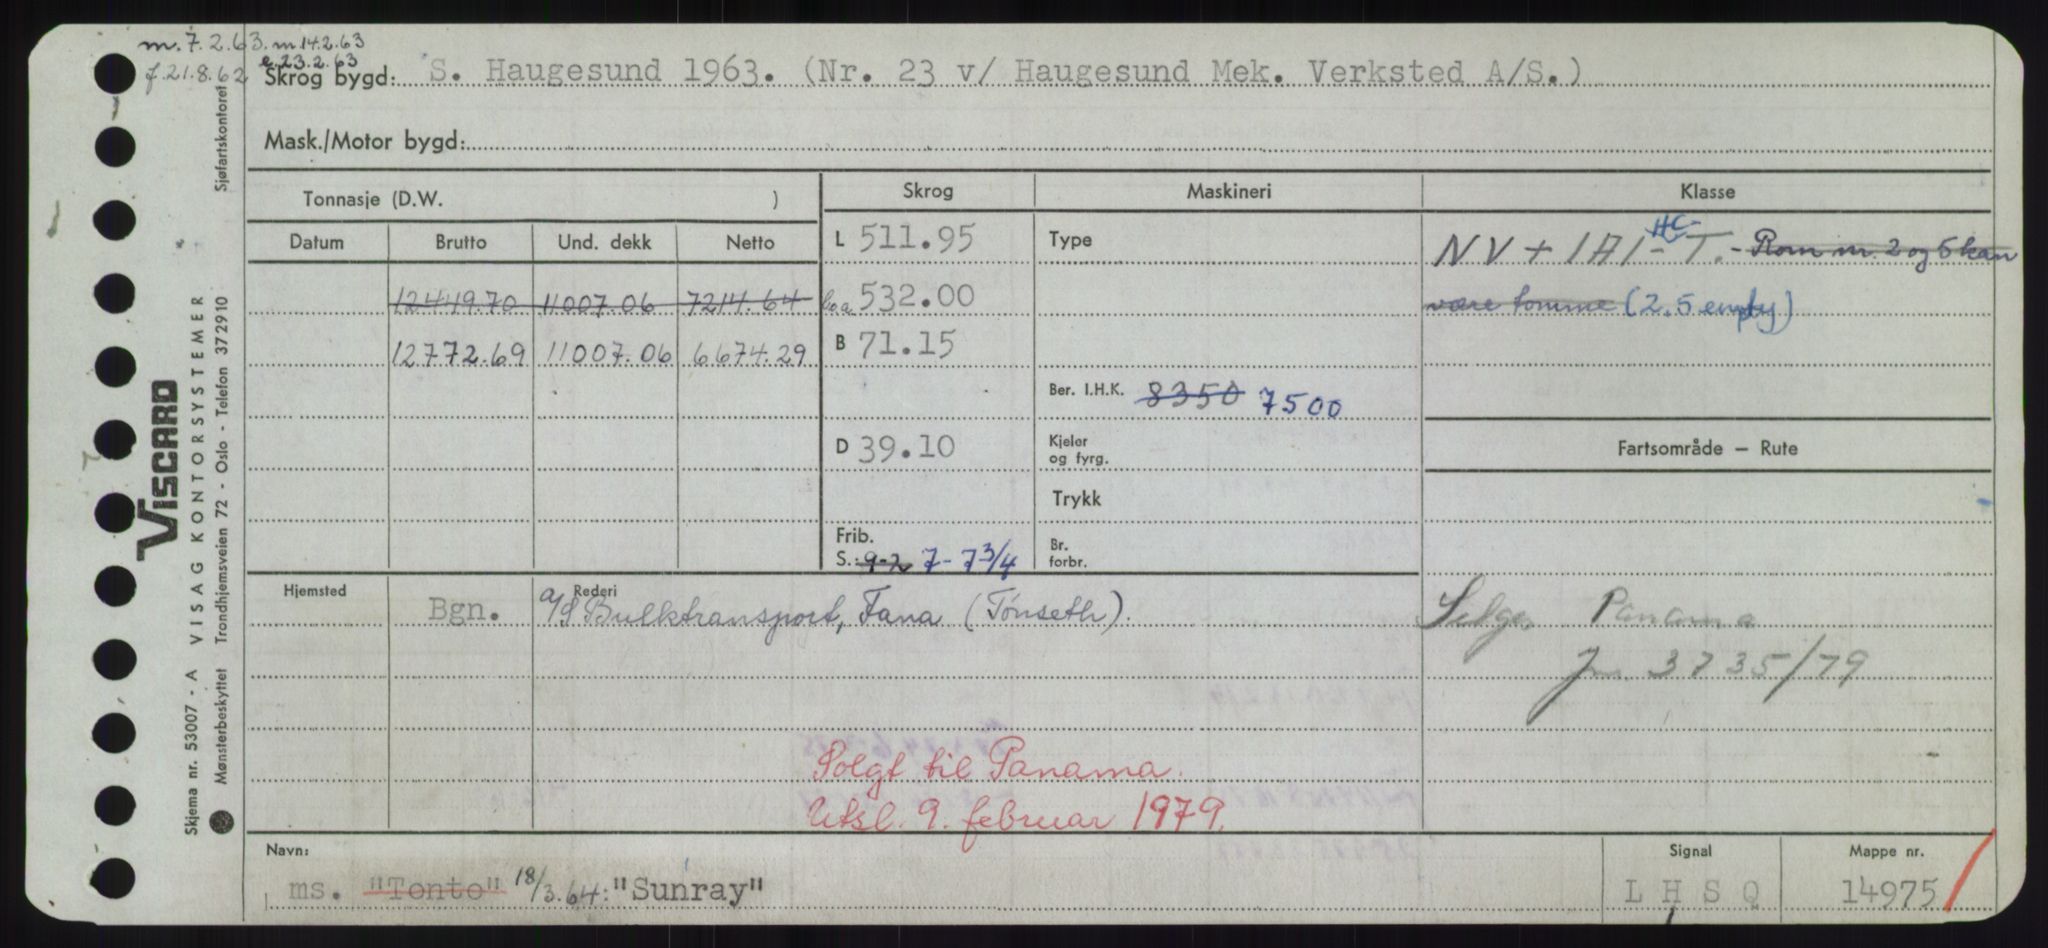 m. 7.2.63. m 14.2.63
f. 21.8.62 e. 23.2.63
Skrog bygd: S. Haugesund 1963. (Nr. 23 v/ Haugesund Mek. Verksted A/S.)
Mask./Motor bygd:
Sjøfartskontoret
Tonnasje (D.W. )
Skrog
Maskineri
Klasse
Datum Brutto Und. dekk Netto
12449.70 11007.06 7214.64
12772.69 11007.06 6674.29
L 511.95
loa 532.00
B 71.15
D 39.10
Frib.
S.: 9-2 7-7 3/4
Type
Ber. I.H.K. 8350 7500
Kjeler
og fyrg.
Trykk
Br.
forbr.
HC
NV + 1A1 - T. - Rom nr. 2 og 5 kan
være tomme (2.5 empty)
Fartsområde – Rute
Selges Panama
jnr. 3735/79
Hjemsted Rederi
Bgn. A/S Bulktransport, Fana (Tönseth).
Solgt til Panama.
Utsl. 9. februar 1979.
Navn: Signal Mappe nr.
ms. "Tonto" 18/3.64: "Sunray" L H S Q 14975
VISCARD
Skjema nr. 53007 - A VISAG KONTORSYSTEMER
Mønsterbeskyttet Trondhjemsveien 72 - Oslo - Telefon 372910